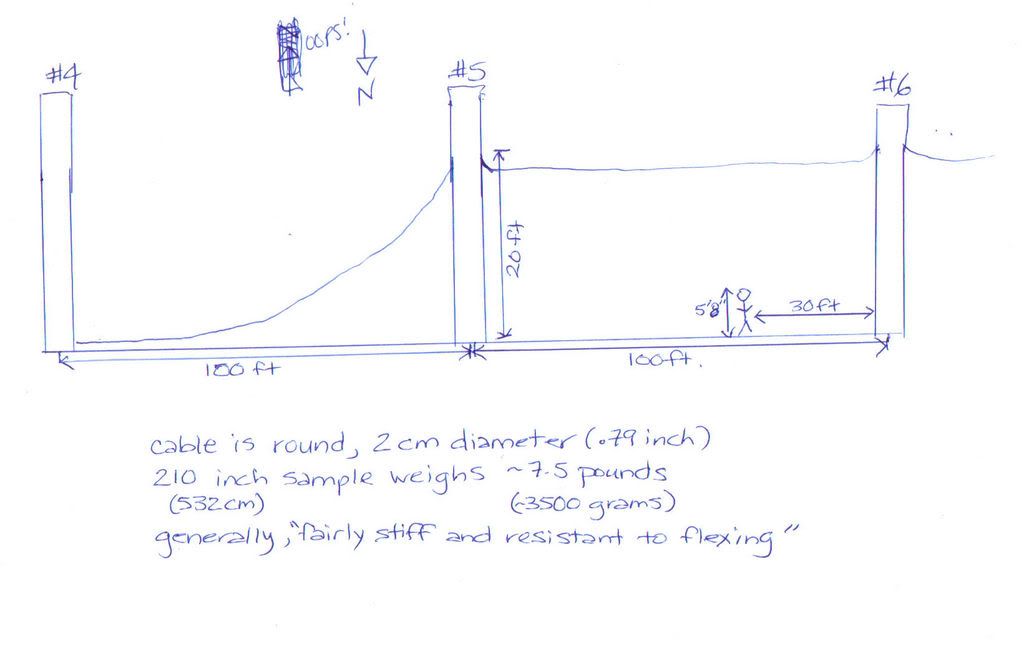 oops!
N
#4
#5
#6
20 ft
5'8"
30ft
100 ft
100ft.
cable is round, 2 cm diameter (.79 inch)
210 inch sample weighs ~7.5 pounds
(532cm) (~3500 grams)
generally, "fairly stiff and resistant to flexing"